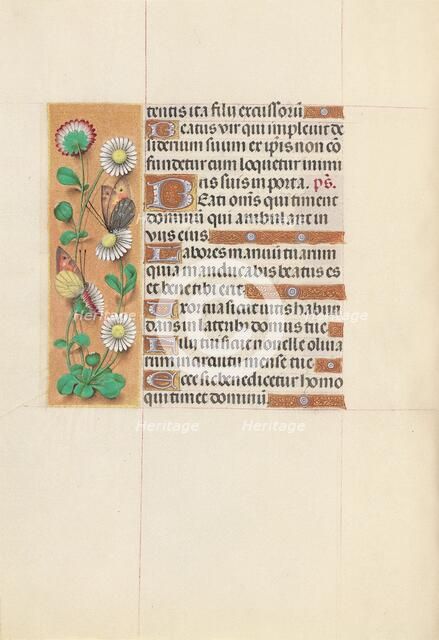 tentis ita filij excussorū
Beatus vir qui impleuit de
siderium suum ex ipsis non cō
fundetur cum loquetur inimi
cis suis in porta. ps.
Beati om̄s qui timent
dominū qui ambulant in
viis eius
Labores manuū tuarum
quia manducabis beatus es
et bene tibi erit
Uxor tua sicut vitis habun
dans in laterib9 domus tue
Filij tui sicut nouelle oliua
rum in circuitu mense tue
Ecce sic benedicetur homo
qui timet dominū
Heritage Heritage Heritage
Heritage Heritage